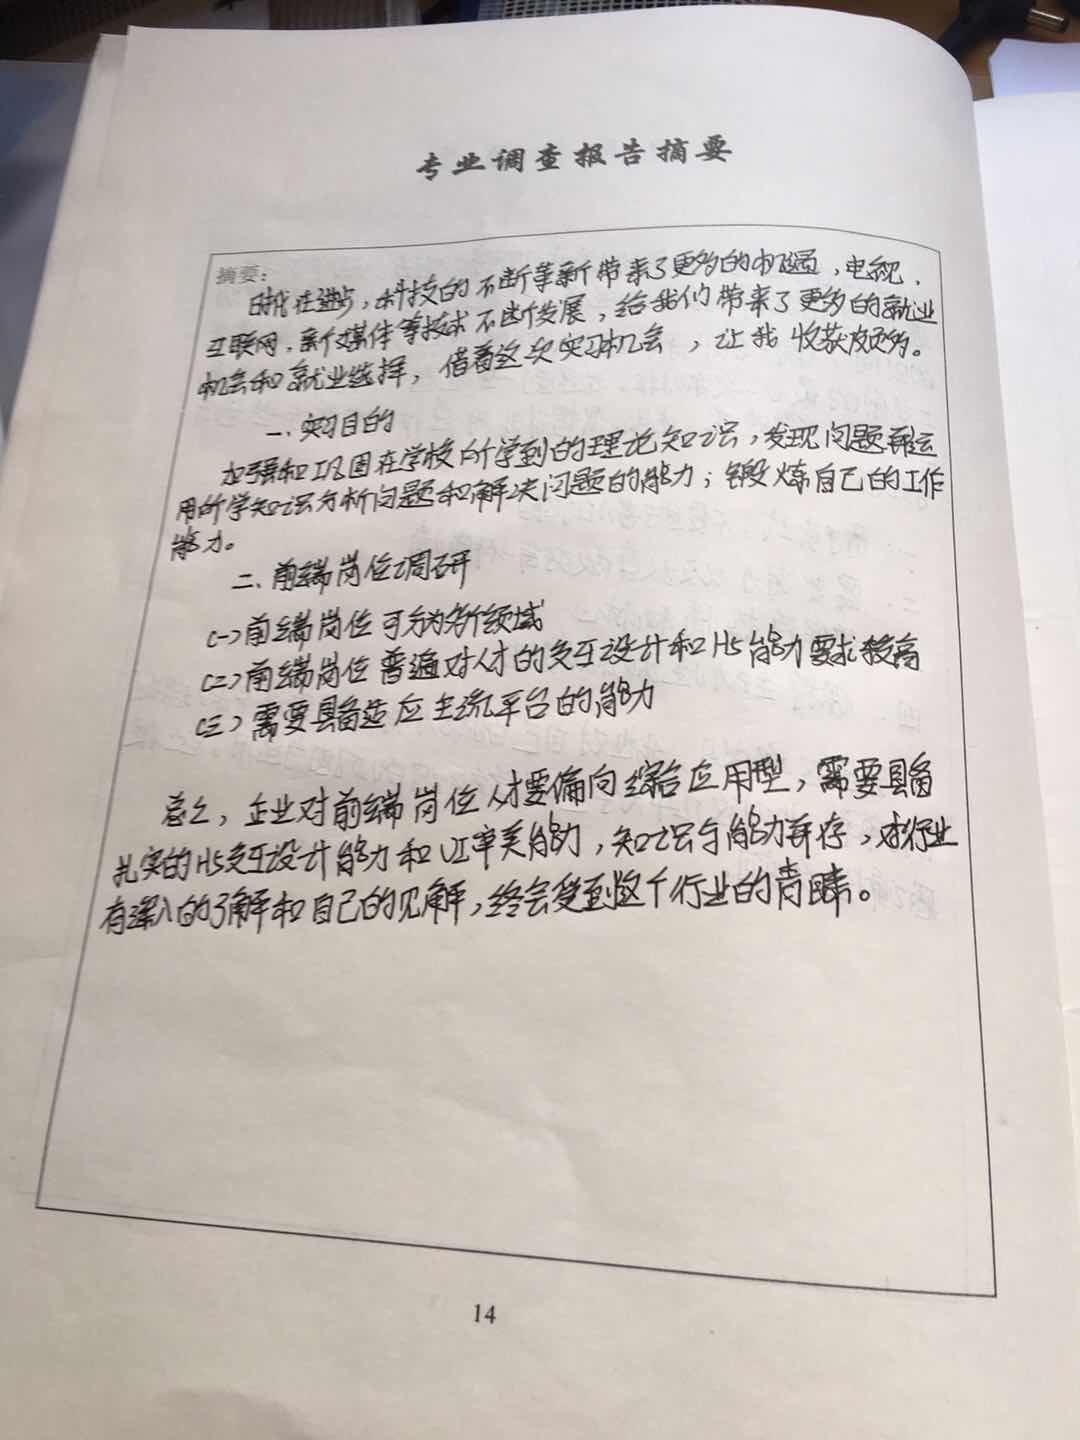 专业调查报告摘要
摘要:
时代在进步,科技的不断革新带来了更多的机遇,电视、
互联网、新媒体等技术不断发展,给我们带来了更多的就业
机会和就业选择,借着这次实习机会,让我收获颇多。
一、实习目的
加强和巩固在学校所学到的理论知识,发现问题并运
用所学知识分析问题和解决问题的能力;锻炼自己的工作
能力。
二、前端岗位调研
(一)前端岗位可分为多个领域
(二)前端岗位普遍对人才的交互设计和H5能力要求较高
(三)需要具备适应主流平台的能力
总之,企业对前端岗位人才要偏向综合应用型,需要具备
扎实的H5交互设计能力和UI审美能力,知识与能力并存,对行业
有深入的了解和自己的见解,终会受到这个行业的青睐。
14